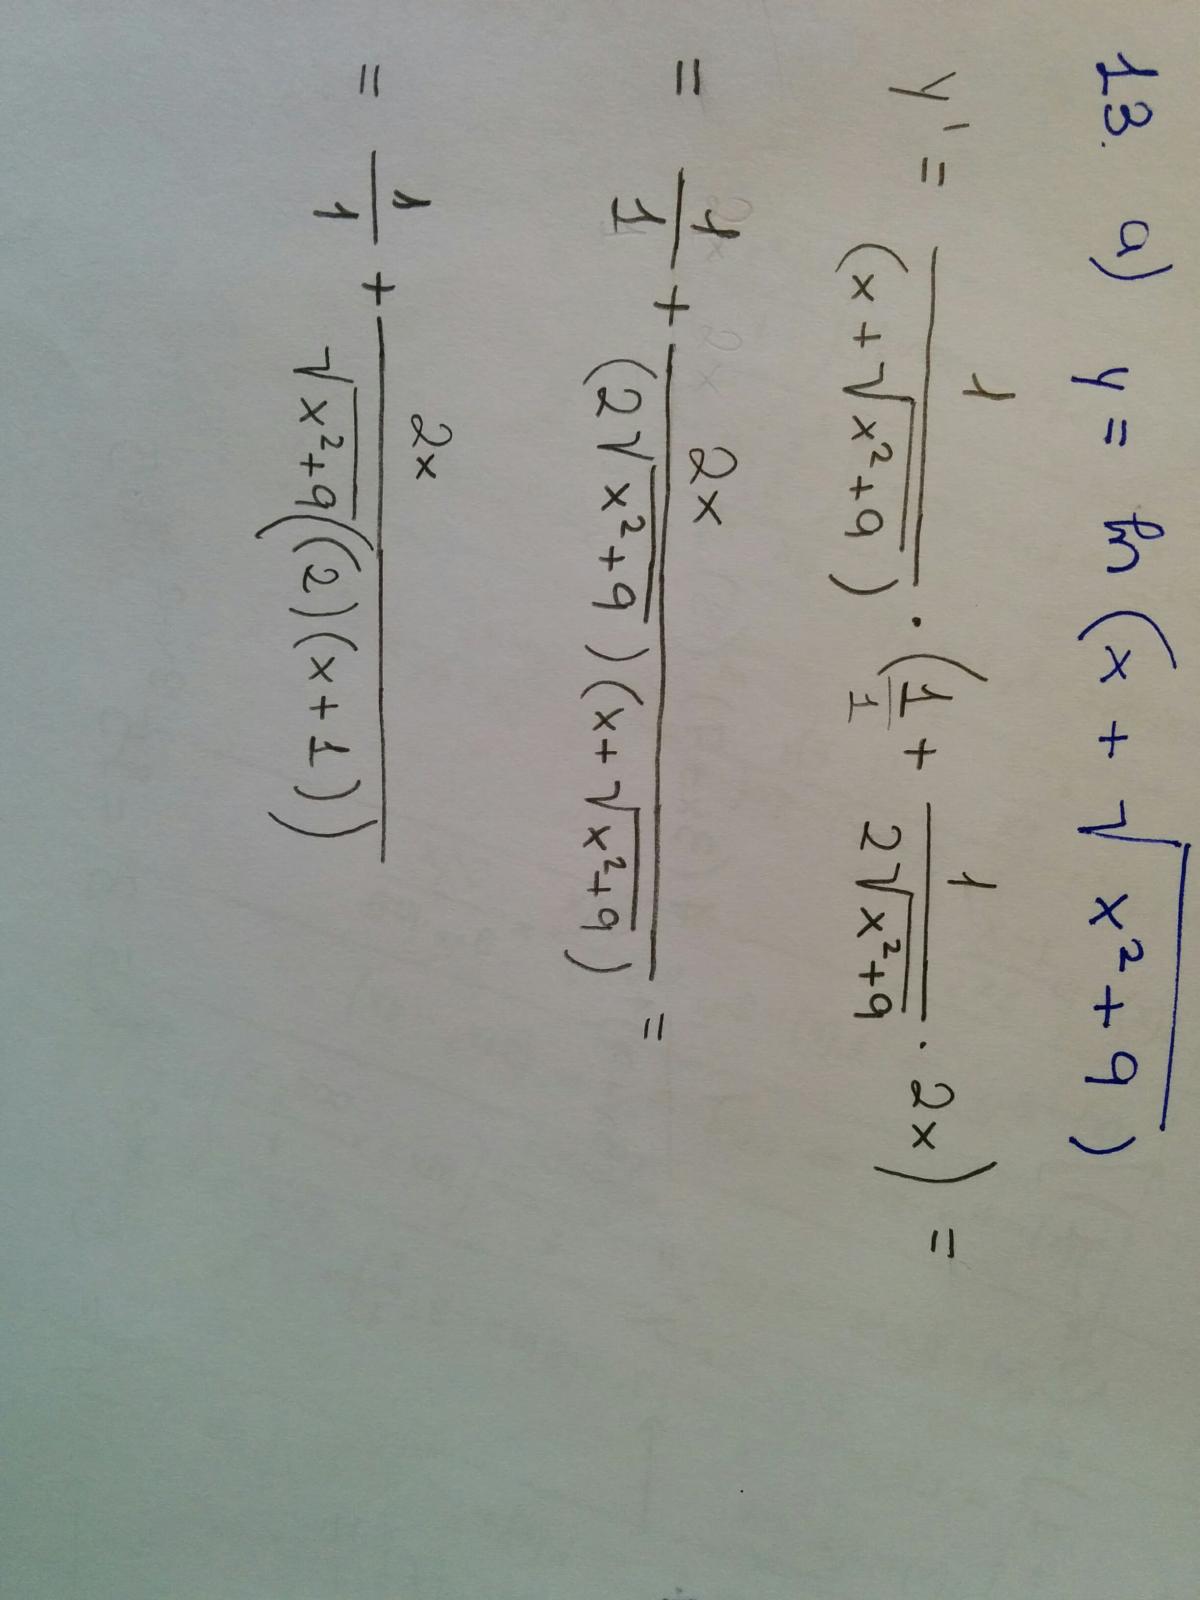 13. a) y = ln (x + √(x²+9))
y' = 1/(x + √(x²+9)) · (1/1 + 1/(2√(x²+9)) · 2x) =
= 1/1 + 2x/((2√(x²+9))(x+√(x²+9))) =
= 1/1 + 2x/(√(x²+9)((2)(x+1)))